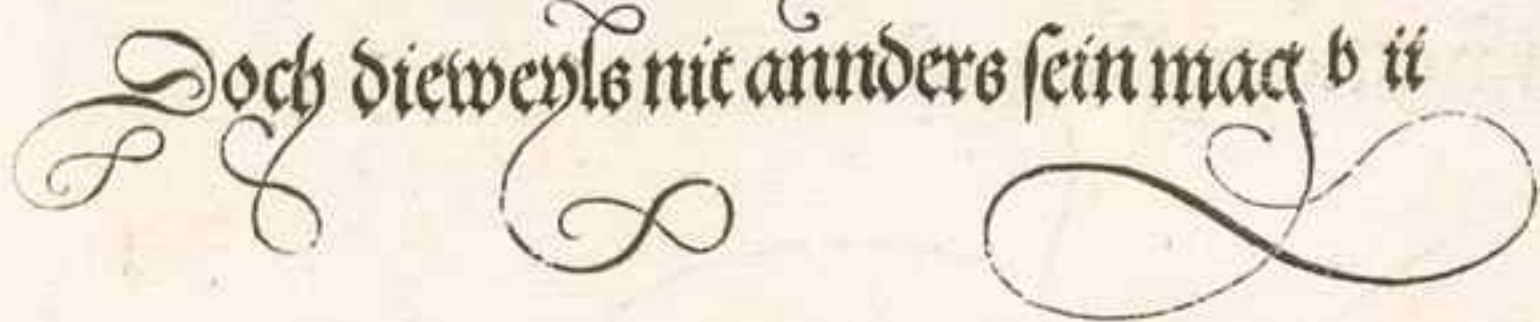 Doch dieweyls nit annders sein mag b ii